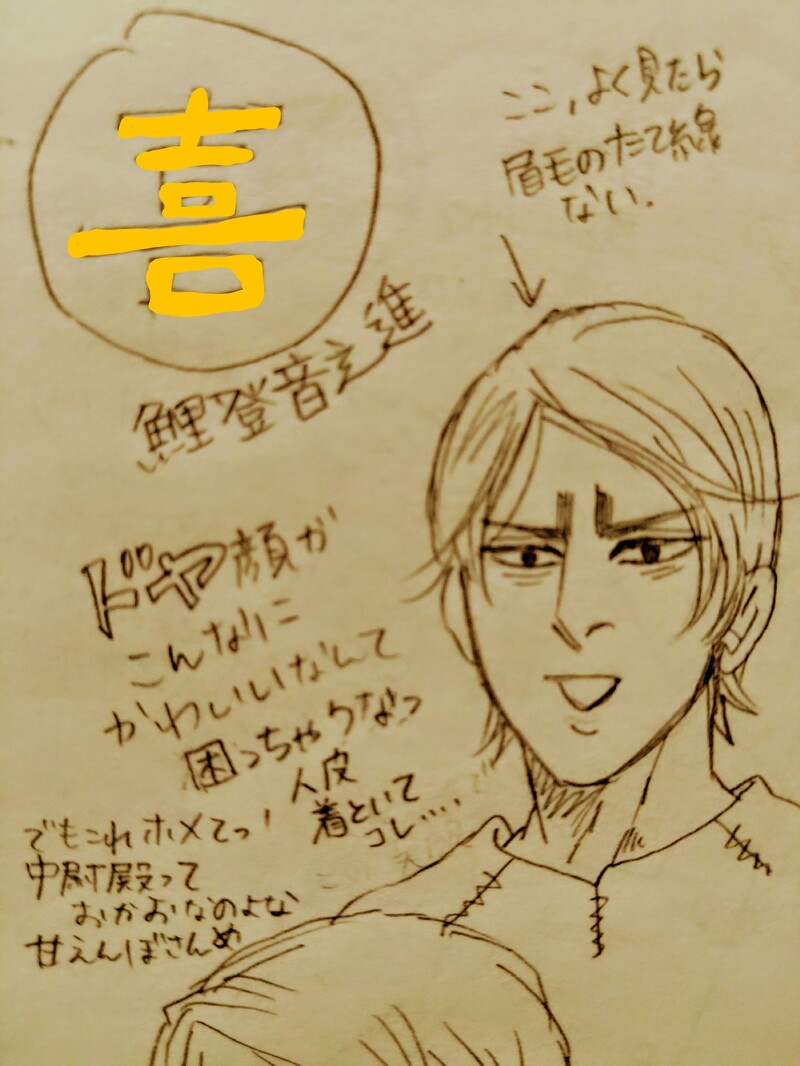 喜
ここ、よく見たら
眉毛のたて線
ない.
鯉登音之進
ドヤ顔が
こんなに
かわいいなんて
困っちゃうなっ
人皮
着といて
コレ....
でもこれホメてっ!
中尉殿って
おかおなのよな
甘えんぼさんめ